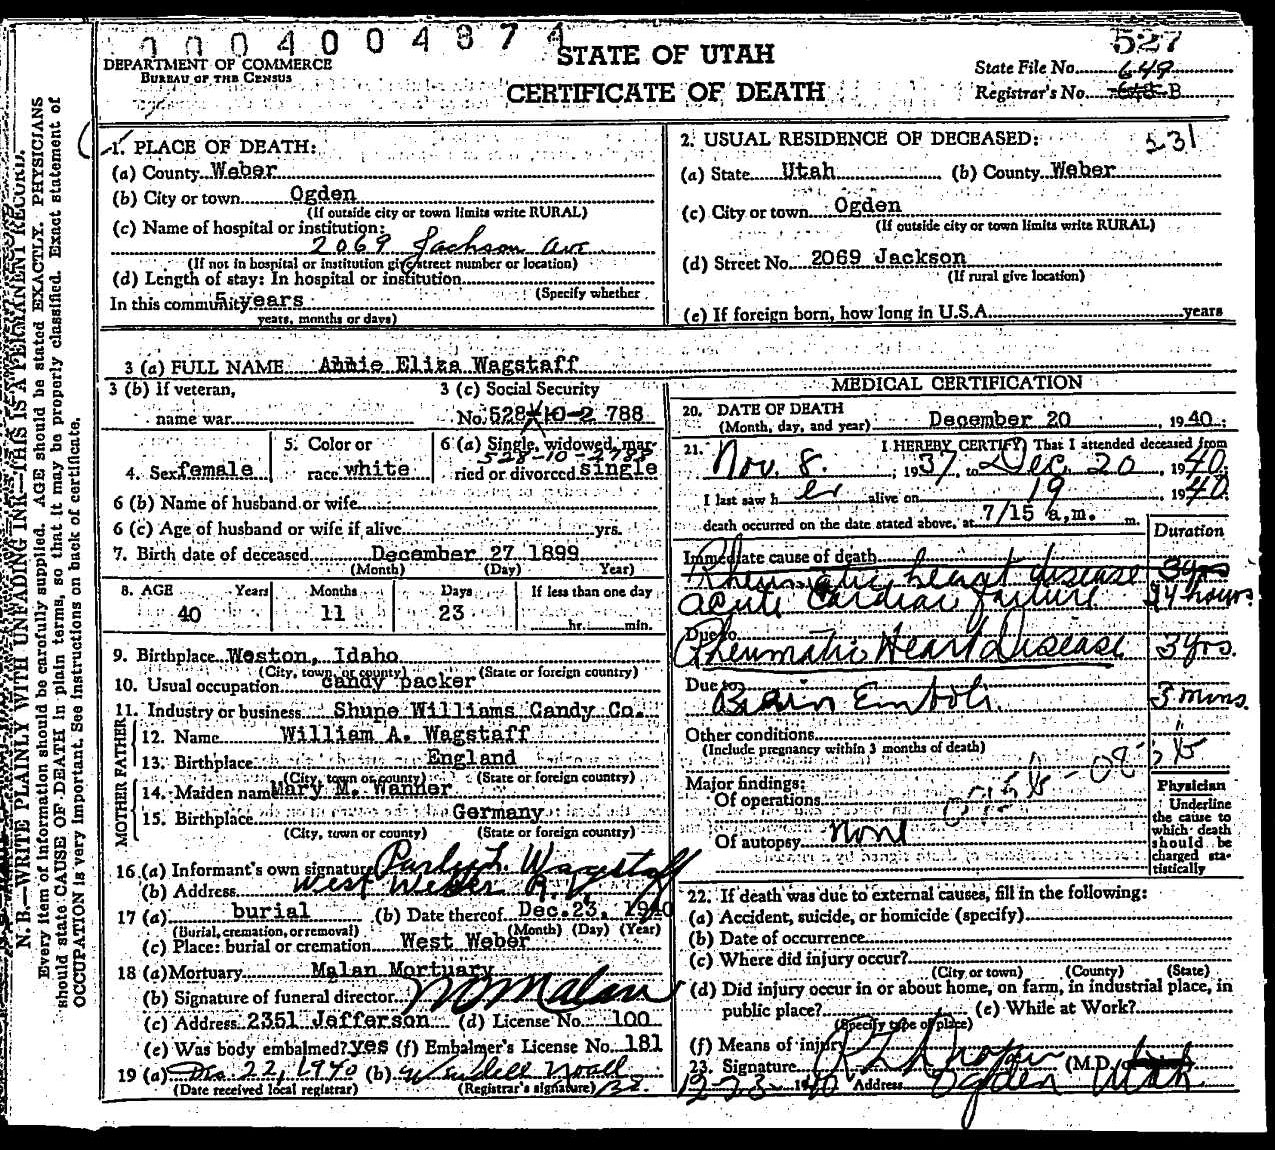 0004004874
STATE OF UTAH
CERTIFICATE OF DEATH
DEPARTMENT OF COMMERCE
BUREAU OF THE CENSUS
527
State File No. 649
Registrar's No. B
1. PLACE OF DEATH:
(a) County Weber
(b) City or town Ogden
(If outside city or town limits write RURAL)
(c) Name of hospital or institution:
2069 Jackson Ave
(If not in hospital or institution give street number or location)
(d) Length of stay: In hospital or institution
(Specify whether
In this community 5 years
years, months or days)
2. USUAL RESIDENCE OF DECEASED: 531
(a) State Utah (b) County Weber
(c) City or town Ogden
(If outside city or town limits write RURAL)
(d) Street No. 2069 Jackson
(If rural give location)
(e) If foreign born, how long in U.S.A. years
3 (a) FULL NAME Annie Eliza Wagstaff
3 (b) If veteran,
name war
3 (c) Social Security
No. 528-10-2 788
4. Sex female
5. Color or
race white
6 (a) Single, widowed, mar-
528-10-2788
ried or divorced single
6 (b) Name of husband or wife
6 (c) Age of husband or wife if alive yrs.
7. Birth date of deceased December 27 1899
(Month) (Day) Year)
8. AGE Years Months Days If less than one day
40 11 23 hr. min.
9. Birthplace Weston, Idaho
(City, town, or county) (State or foreign country)
10. Usual occupation candy packer
11. Industry or business Shupe Williams Candy Co.
FATHER
12. Name William A. Wagstaff
13. Birthplace England
(City, town or county) (State or foreign country)
MOTHER
14. Maiden name Mary M. Wanner
15. Birthplace Germany
(City, town or county) (State or foreign country)
16 (a) Informant's own signature Parley L. Wagstaff
(b) Address West Weber
17 (a) burial (b) Date thereof Dec.23, 1940
(Burial, cremation, or removal) (Month) (Day) (Year)
(c) Place: burial or cremation West Weber
18 (a) Mortuary Malan Mortuary
(b) Signature of funeral director Malan
(c) Address 2351 Jefferson (d) License No. 100
(e) Was body embalmed? yes (f) Embalmer's License No. 181
19 (a) Dec 22, 1940 (b)
(Date received local registrar) (Registrar's signature)
MEDICAL CERTIFICATION
20. DATE OF DEATH
(Month, day, and year) December 20, 1940
21. I HEREBY CERTIFY, That I attended deceased from
Nov. 8, 1937, to Dec. 20, 1940
I last saw h er alive on 19, 1940
death occurred on the date stated above, at 7/15 a,m. m.
Duration
Immediate cause of death
Rheumatic heart disease 3 yrs
acute cardiac failure 24 hours.
Due to
Rheumatic Heart Disease 3 yrs.
Due to
Brain Emboli. 3 mins.
Other conditions
(Include pregnancy within 3 months of death)
Major findings:
Of operations
Of autopsy none
Physician
Underline
the cause to
which death
should be
charged sta-
tistically
22. If death was due to external causes, fill in the following:
(a) Accident, suicide, or homicide (specify)
(b) Date of occurrence
(c) Where did injury occur?
(City or town) (County) (State)
(d) Did injury occur in or about home, on farm, in industrial place, in
public place? (e) While at Work?
(Specify type of place)
(f) Means of injury
23. Signature (M.D.
12-23-1940 Address Ogden Utah
N. B.—WRITE PLAINLY WITH UNFADING INK—THIS IS A PERMANENT RECORD.
Every item of information should be carefully supplied. AGE should be stated EXACTLY. PHYSICIANS
should state CAUSE OF DEATH in plain terms, so that it may be properly classified. Exact statement of
OCCUPATION is very important. See instructions on back of certificate.